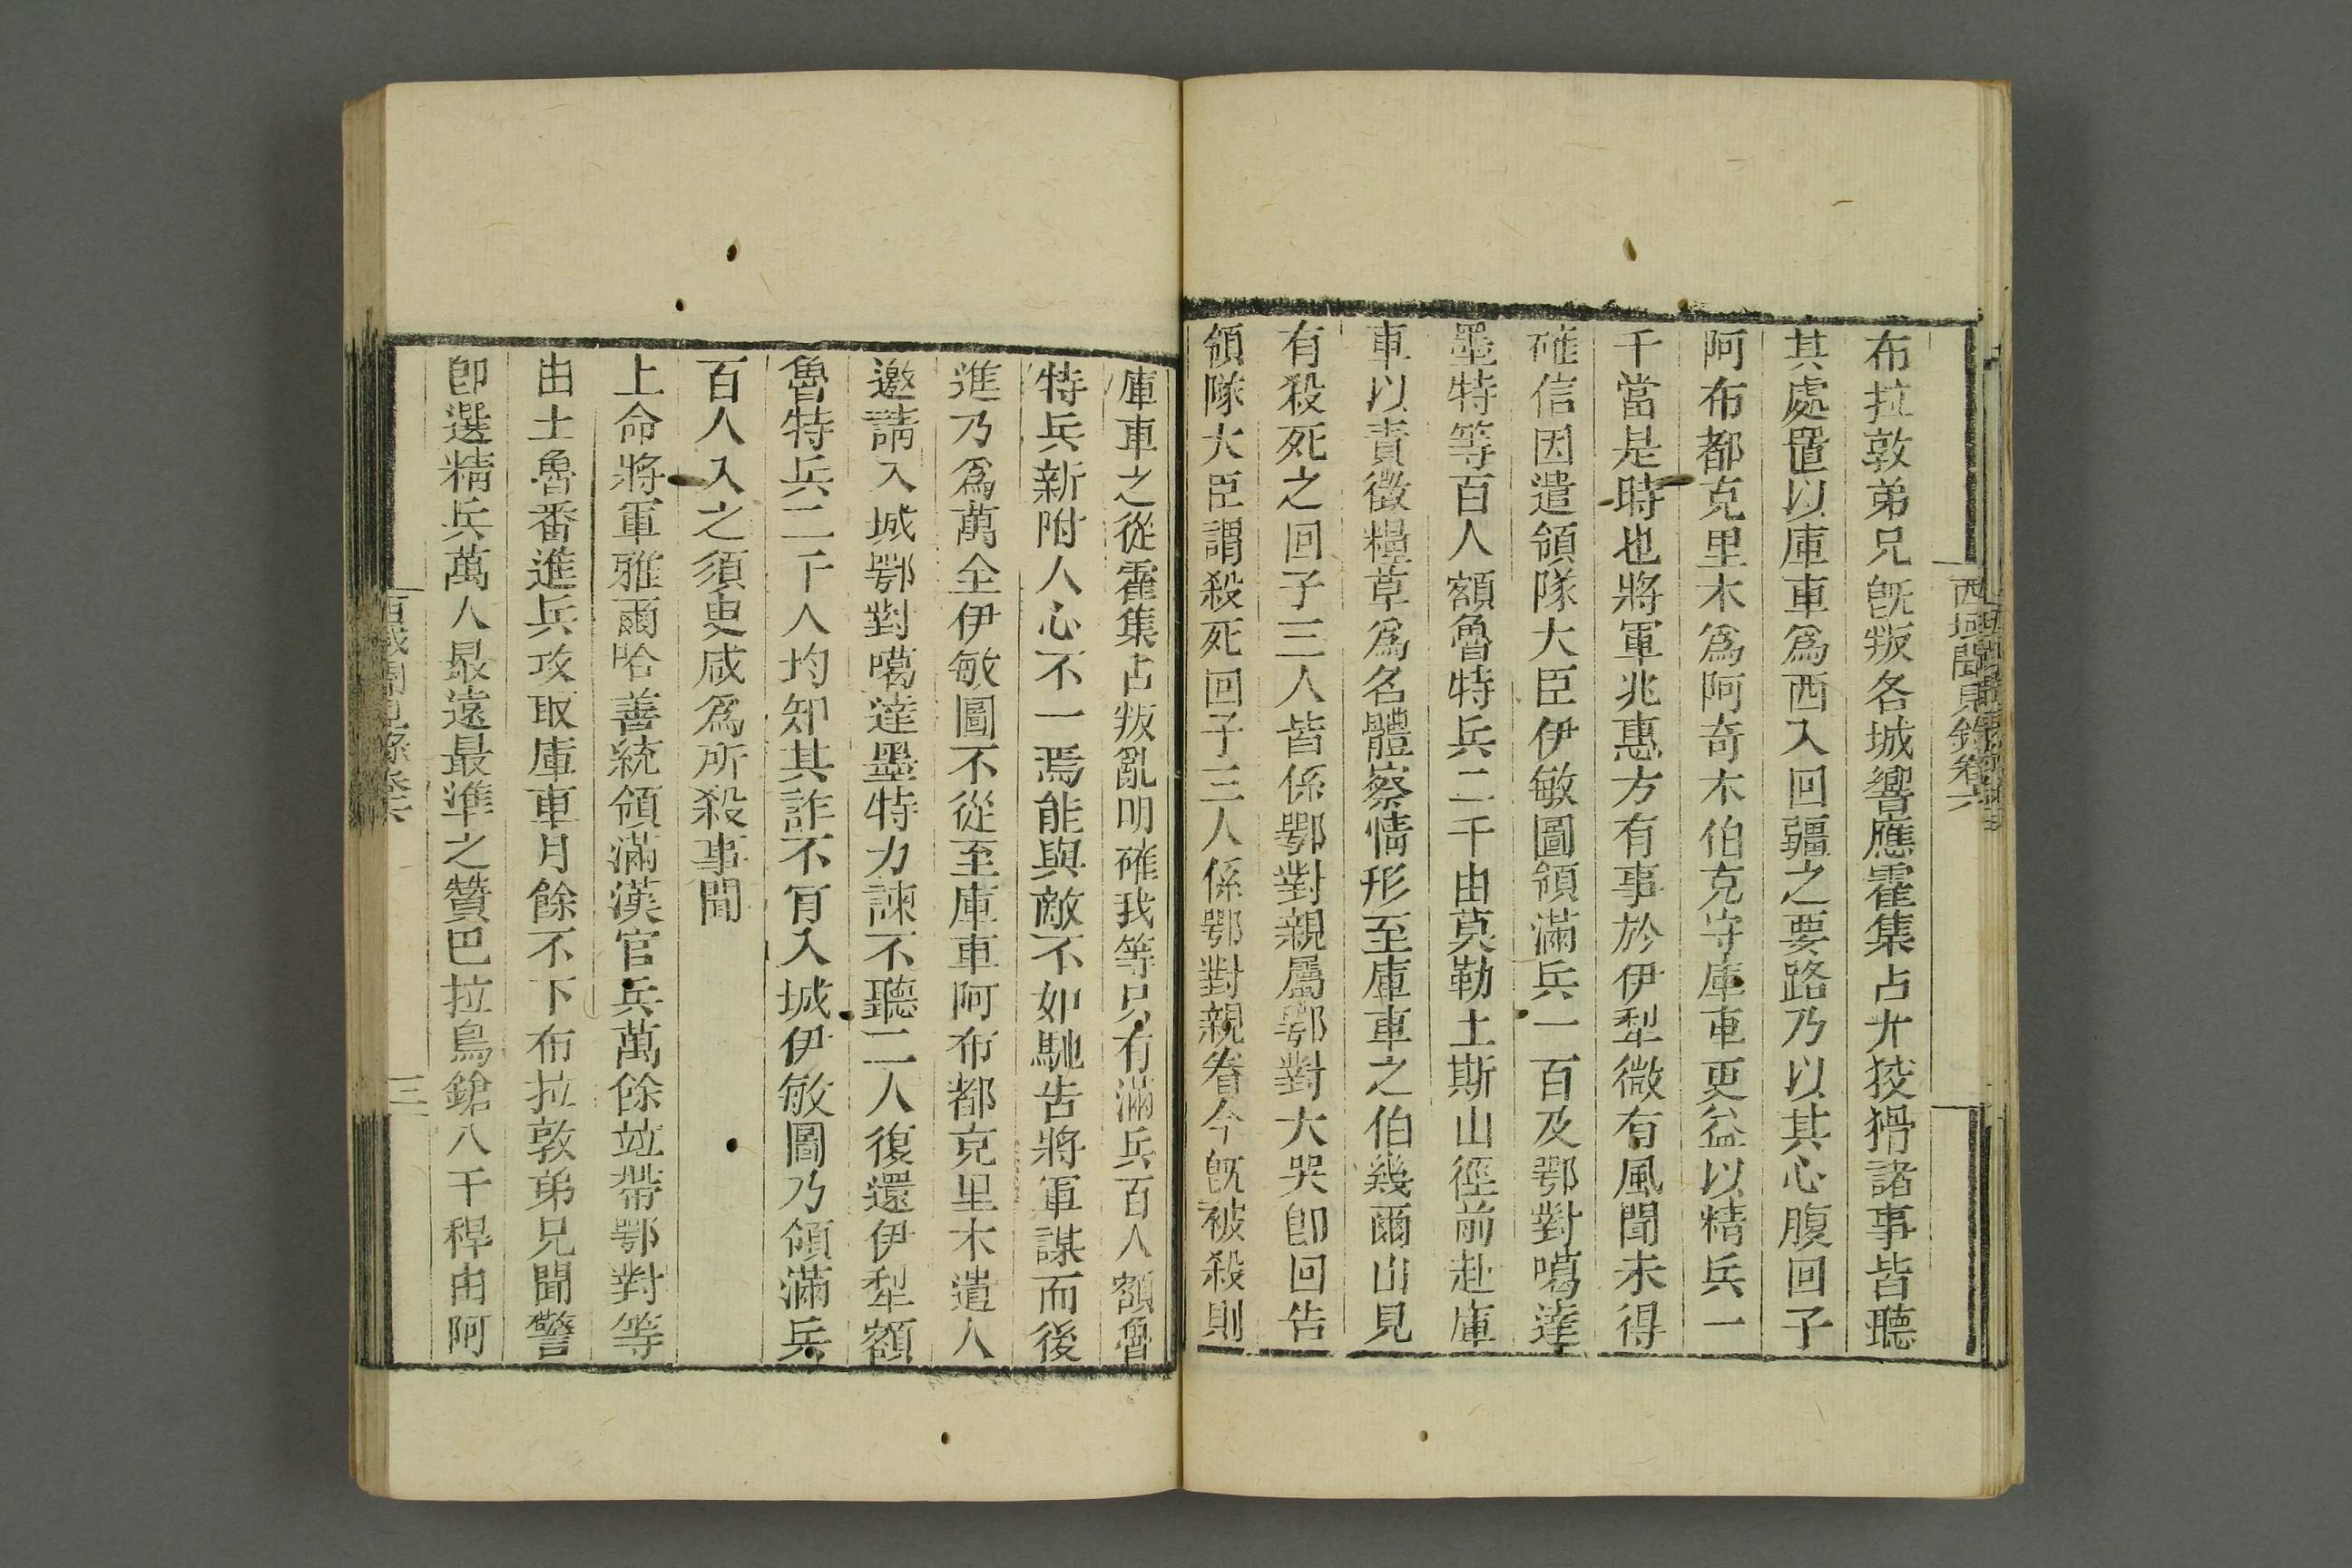 西域聞見錄卷六
布拉敦弟兄旣叛各城響應霍集占尤狡猾諸事皆聽
其處置以庫車爲西入回疆之要路乃以其心腹回子
阿布都克里木爲阿奇木伯克守庫車更益以精兵一
千當是時也將軍兆惠方有事於伊犁微有風聞未得
確信因遣領隊大臣伊敏圖領滿兵一百及鄂對噶達
墨特等百人額魯特兵二千由莫勒土斯山徑前赴庫
車以責徵糧草爲名體察情形至庫車之伯幾爾山見
有殺死之回子三人皆係鄂對親屬鄂對大哭卽回告
領隊大臣謂殺死回子三人係鄂對親眷今旣被殺則
庫車之從霍集占叛亂明確我等只有滿兵百人額魯
特兵新附人心不一焉能與敵不如馳告將軍謀而後
進乃爲萬全伊敏圖不從至庫車阿布都克里木遣人
邀請入城鄂對噶達墨特力諫不聽二人復還伊犁額
魯特兵二千人均知其詐不肯入城伊敏圖乃領滿兵
百人入之須臾咸爲所殺事聞
上命將軍雅爾哈善統領滿漢官兵萬餘竝帶鄂對等
由土魯番進兵攻取庫車月餘不下布拉敦弟兄聞警
卽選精兵萬人最遠最準之贊巴拉鳥鎗八千稈由阿
三